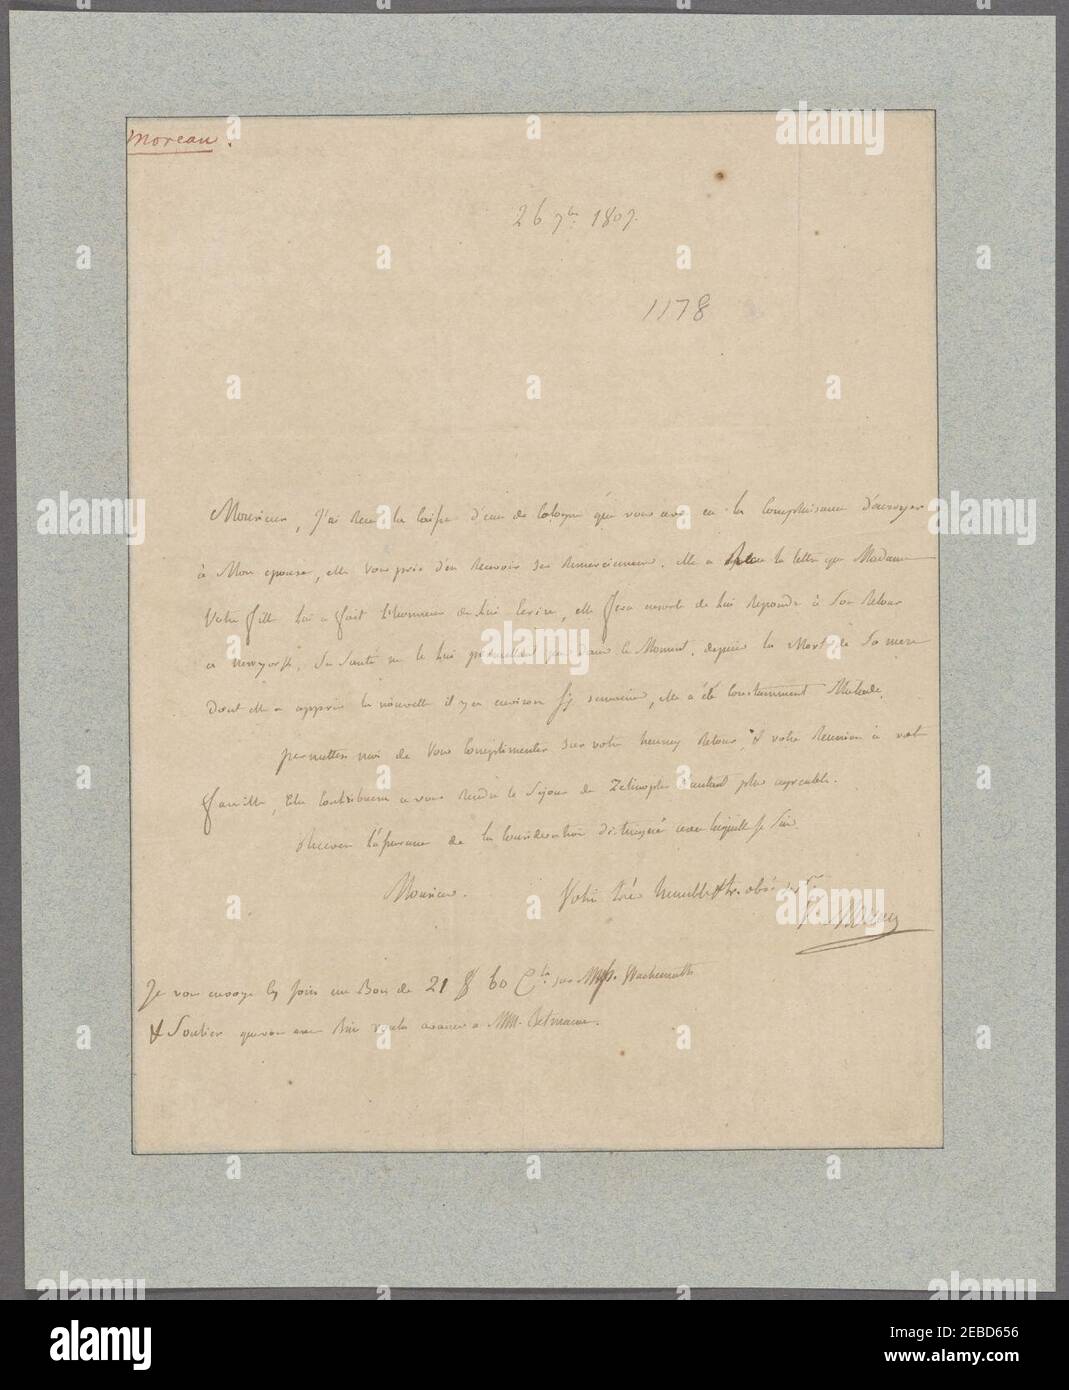 Moreau.
26 7bre 1807.
1178
Monsieur, J'ai Recu la Caisse d'eau de Cologne que vous avez eu la Complaisance d'envoyer
à Mon epouse, elle vous prie d'en Recevoir ses Remerciemens. elle a Recu la lettre que Madame
Votre fille lui a fait l'honneur de lui Ecrire, elle sera ensorte de lui Repondre à Son Retour
a newyork, Sa Santé ne le lui permettant pas dans le Moment. depuis la Mort de Sa mere
dont elle a appris la nouvelle il y a environ six semaines, elle a été Constamment Malade.
permettez moi de Vous Complimenter sur votre heureux Retour, & votre Reunion à votre
famille, Elle Contribuera a vous Rendre le Sejour de d'autant plus agreable.
Recevez l'assurance de la Consideration distinguée avec laquelle je Suis
Monsieur. Votre tres humble & tr. obt. sr.
V. Moreau
Je vous envoye Cy Joint un Bon de 21 $ 60 Cts. sur MM.
& Soulier que vous avez bien voulu avancer a MM.
alamy
Image ID: 2EBD656
www.alamy.com